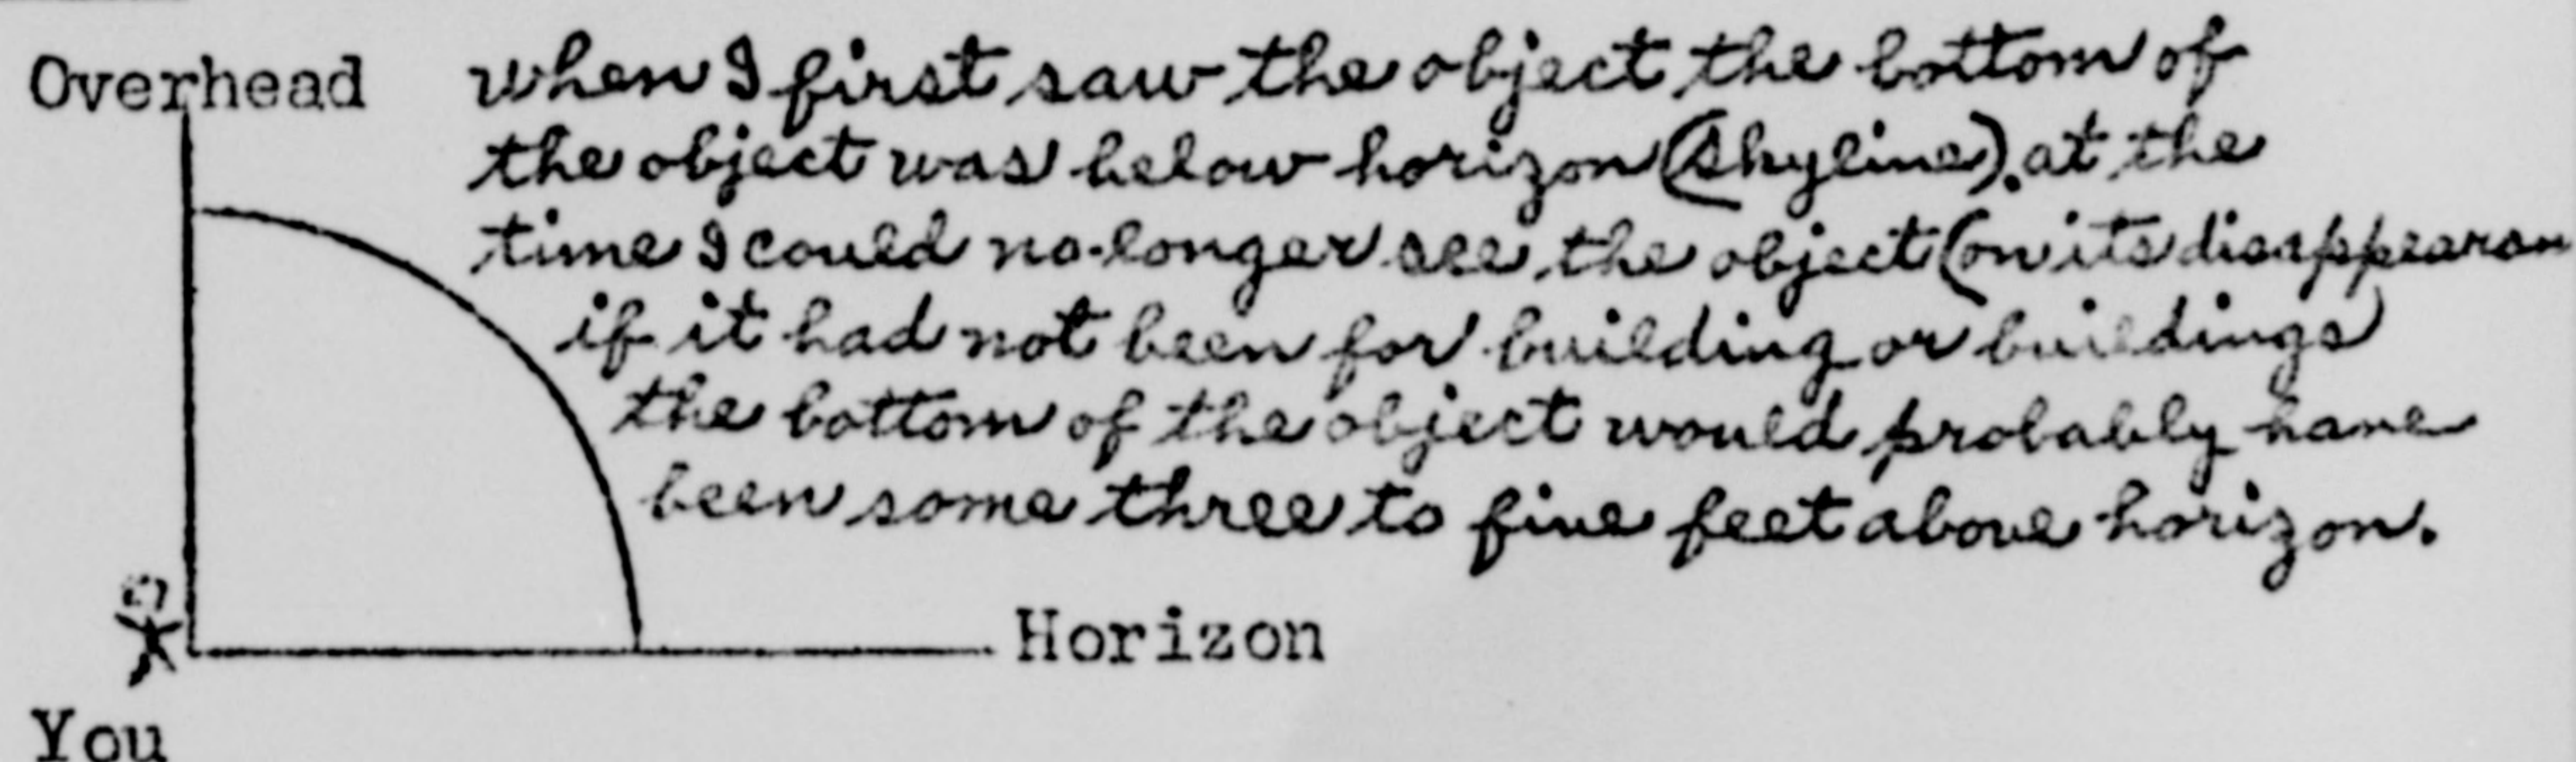 Overhead
when I first saw the object the bottom of
the object was below horizon (skyline). at the
time I could no-longer see the object (on its disappearan
if it had not been for building or buildings)
the bottom of the object would probably have
been some three to five feet above horizon.
Horizon
You